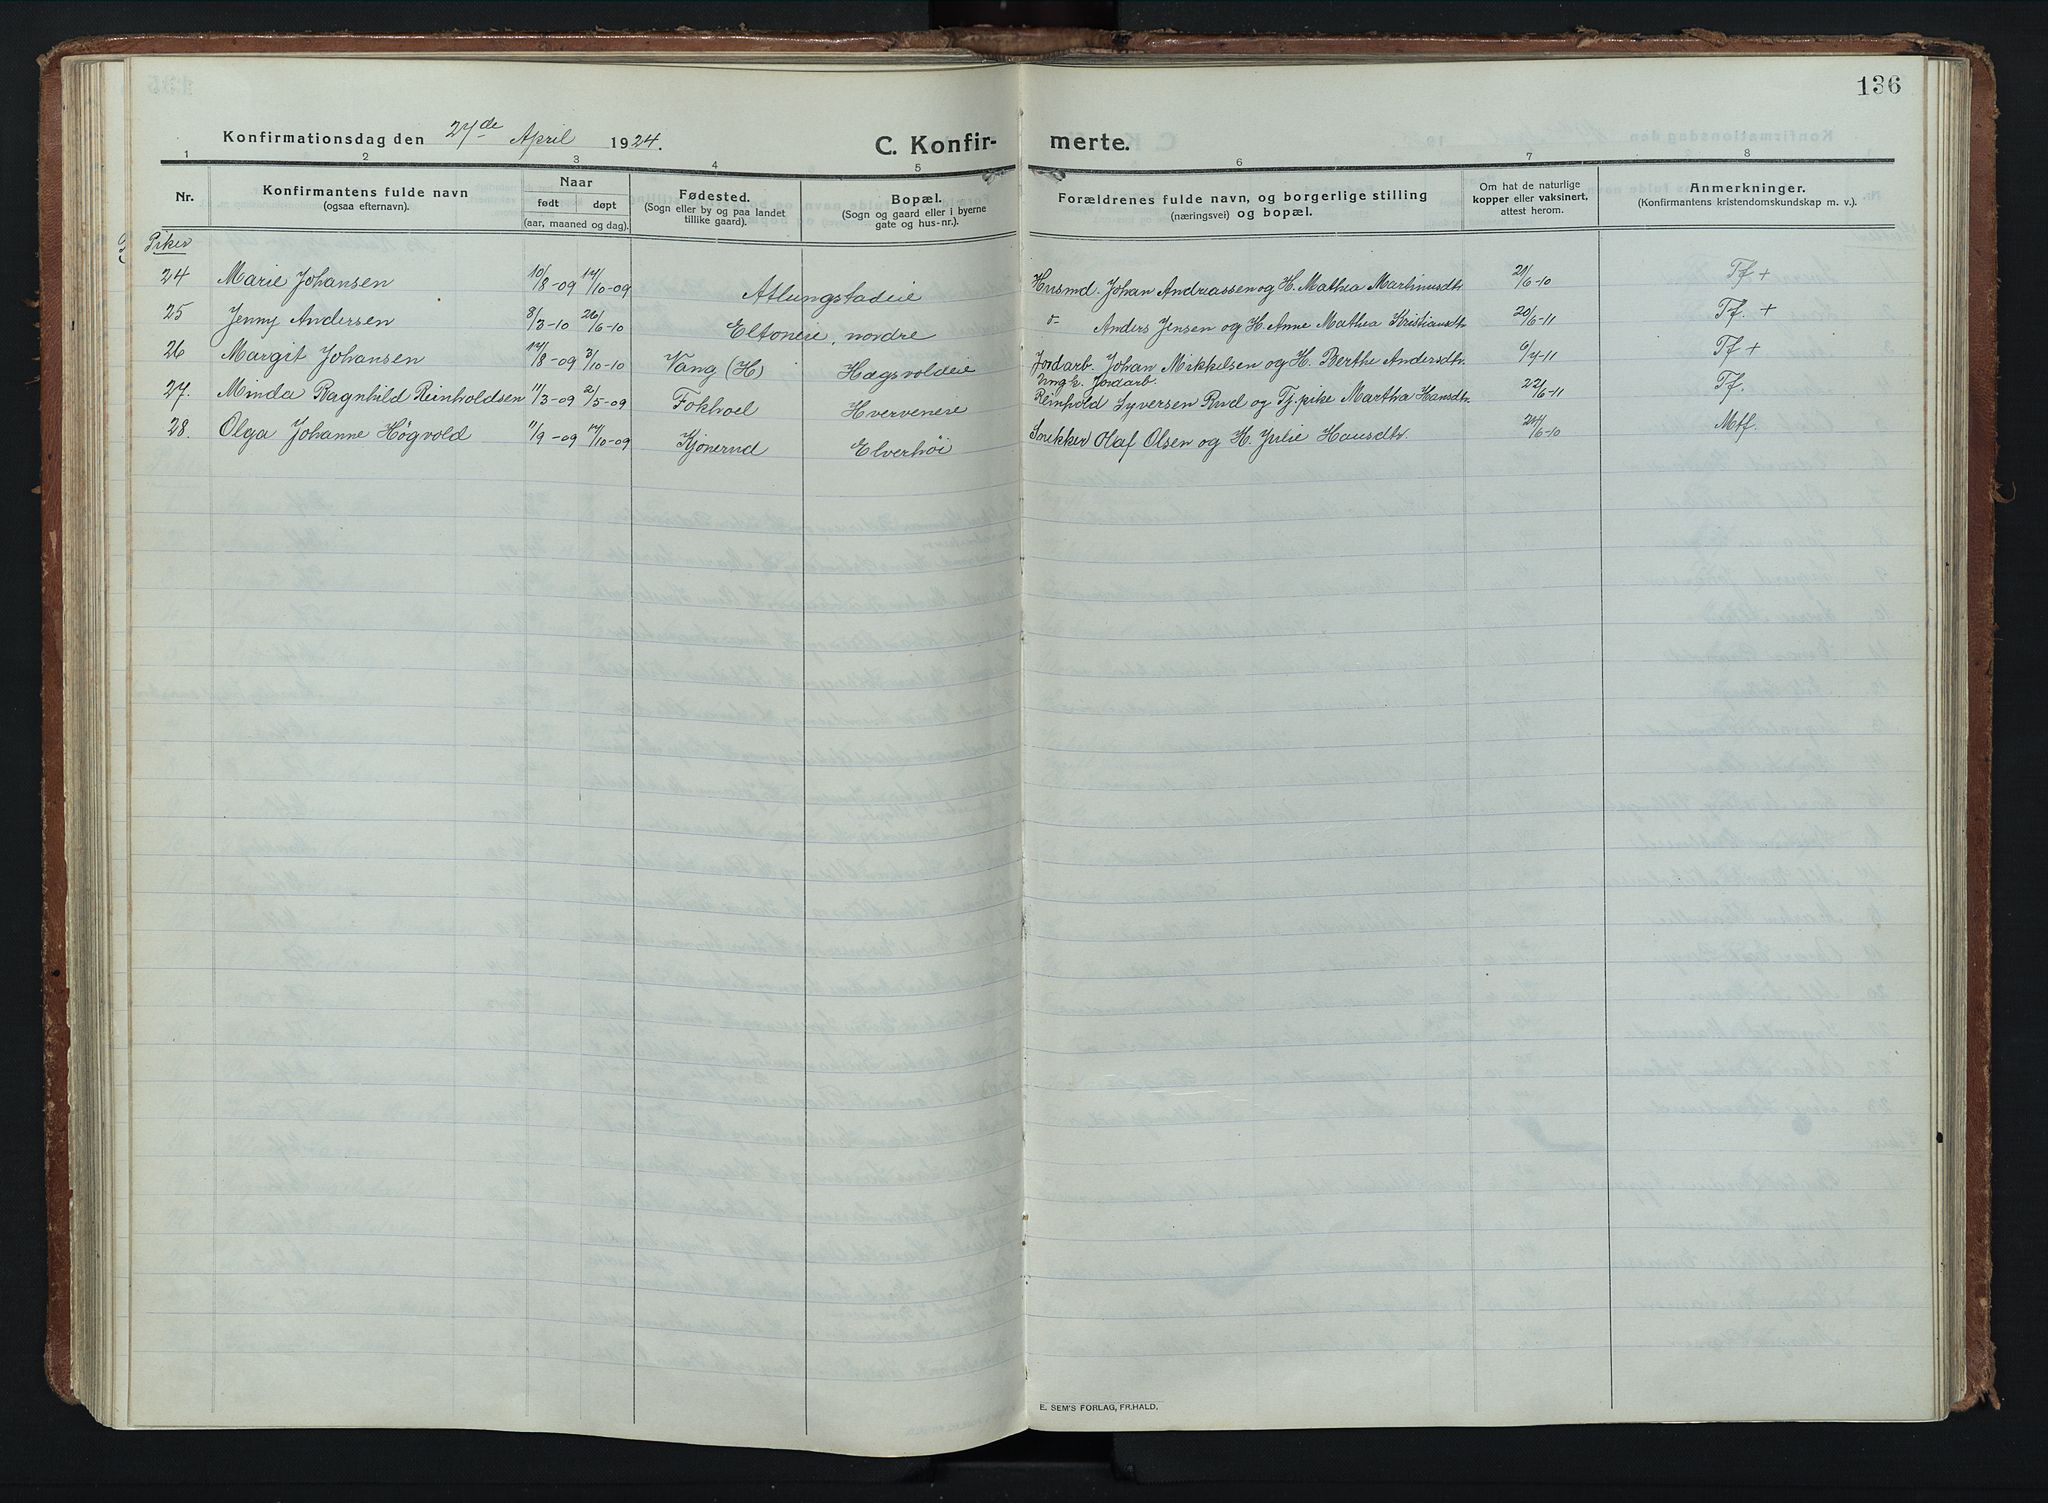 136
Konfirmationsdag den 27de April 1924.
C. Konfir-
merte.
1 2 3 4 5 6 7 8
Nr.
Konfirmantens fulde navn
(ogsaa efternavn).
Naar
født døpt
(aar, maaned og dag).
Fødested.
(Sogn eller by og paa landet
tillike gaard).
Bopæl.
(Sogn og gaard eller i byerne
gate og hus-nr.).
Forældrenes fulde navn, og borgerlige stilling
(næringsvei) og bopæl.
Om hat de naturlige
kopper eller vaksinert,
attest herom.
Anmerkninger.
(Konfirmantens kristendomskundskap m. v.).
Piker
24 Marie Johansen 10/8-09 17/10-09 Atlungstadeie Husmd. Johan Andreassen og H. Mathea Martinusdtr 21/6-10 Tf +
25 Jenny Andersen 8/3-10 26/6-10 Eltoneie, nordre Anders Jensen og H. Anne Mathea Kristiansdtr 20/6-11 Tf. +
26 Margit Johansen 17/8-09 3/10-10 Vang (H) Hægsvoldeie Jordarb. Johan Mikkelsen og H. Berthe Andersdtr. 6/7-11 Tf +
Ungk. Jordarb.
27. Minda Ragnhild Reinholdsen 11/3-09 2/5-09 Fokhoel Hverveneie Reinhold Syversen Rud og Tj. pike Martha Hansdtr. 22/6-11 Tf.
28. Olga Johanne Høgvold 11/9-09 17/10-09 Kjønerud Elverhøi Olaf Olsen og H. Julie Hansdtr. 24/6-10 Mtf.
E. SEM'S FORLAG, FR.HALD.